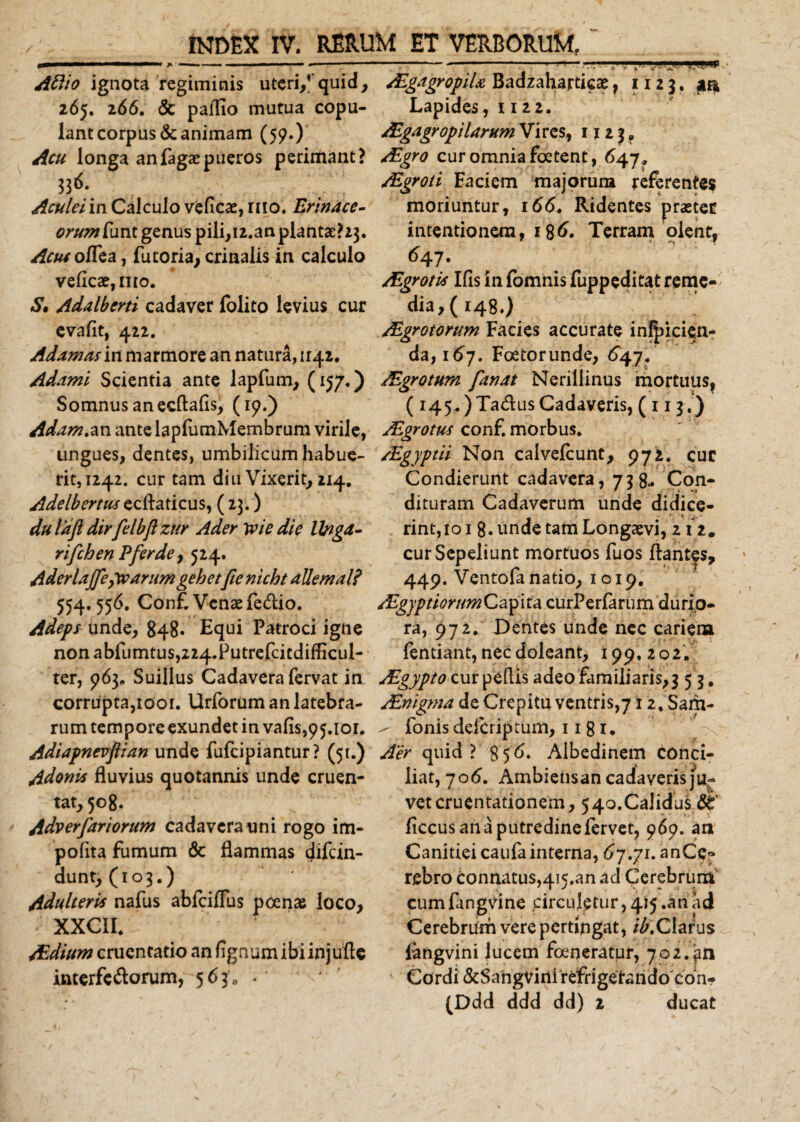 INDEX IV. RERUM ET VERBORUM.
Actio ignota regiminis uteri, quid,
265. 266. & paſſio mutua copu-
lant corpus & animam (59.)
Acu longa an ſagæ pueros perimant?
336.
Aculei in Calculo veſicæ, 1110. Erinace-
orum ſunt genus pili, 12. an plantæ? 23.
Acus oſſea, ſutoria, crinalis in calculo
veſicæ, 1110.
S. Adalberti cadaver ſolito levius cur
evaſit, 422.
Adamas in marmore an naturâ, 1142.
Adami Scientia ante lapſum, (157.)
Somnus an ecſtaſis, (19.)
Adam. an ante lapſum Membrum virile,
ungues, dentes, umbilicum habue-
rit, 1242. cur tam diu Vixerit, 214.
Adelbertus ecſtaticus, (23.)
du läſt dir ſelbſt zur Ader wie die Unga-
riſchen Pferde, 524.
Aderlaſſe, warum gehet ſie nicht allemal?
554. 556. Conf. Venæ ſectio.
Adeps unde, 848. Equi Patroci igne
non abſumtus, 224. Putreſcit difficul-
ter, 963. Suillus Cadavera ſervat in
corrupta, 1001. Urſorum an latebra-
rum tempore exundet in vaſis, 95. 101.
Adiapnevſtian unde ſuſcipiantur? (51.)
Adonis fluvius quotannis unde cruen-
tat, 508.
Adverſariorum cadavera uni rogo im-
poſita fumum & flammas diſcin-
dunt, (103.)
Adulteris naſus abſciſſus pœnæ loco,
XXCII.
Ædium cruentatio an ſignum ibi injuſte
interfectorum, 563.
Ægagropilæ Badzaharticæ, 1123. an
Lapides, 1122.
Ægagropilarum Vires, 1123.
Ægro cur omnia fœtent, 647.
Ægroti Faciem majorum referentes
moriuntur, 166. Ridentes præter
intentionem, 186. Terram olent,
647.
Ægrotis Iſis in ſomnis ſuppeditat reme-
dia, (148.)
Ægrotorum Facies accurate inſpicien-
da, 167. Fœtor unde, 647.
Ægrotum ſanat Nerillinus mortuus,
(145.) Tactus Cadaveris, (113.)
Ægrotus conf. morbus.
Ægyptii Non calveſcunt, 972. cur
Condierunt cadavera, 738. Con-
dituram Cadaverum unde didice-
rint, 1018. unde tam Longævi, 212.
cur Sepeliunt mortuos ſuos ſtantes,
449. Ventoſa natio, 1019.
Ægyptiorum Capita cur Perſarum durio-
ra, 972. Dentes unde nec cariem
ſentiant, nec doleant, 199. 202.
Ægypto cur peſtis adeo familiaris, 353.
Ænigma de Crepitu ventris, 712. Sam-
ſonis deſcriptum, 1181.
Aër quid? 856. Albedinem conci-
liat, 706. Ambiens an cadaveris ju-
vet cruentationem, 540. Calidus &
ſiccus an à putredine ſervet, 969. an
Canitiei cauſa interna, 67. 71. an Ce-
rebro connatus, 415. an ad Cerebrum
cum ſangvine circuletur, 415. an ad
Cerebrum vere pertingat, ib. Clarus
ſangvini lucem fœneratur, 702. an
Cordi & Sangvini refrigerando con-
(Ddd ddd dd) 2 ducat